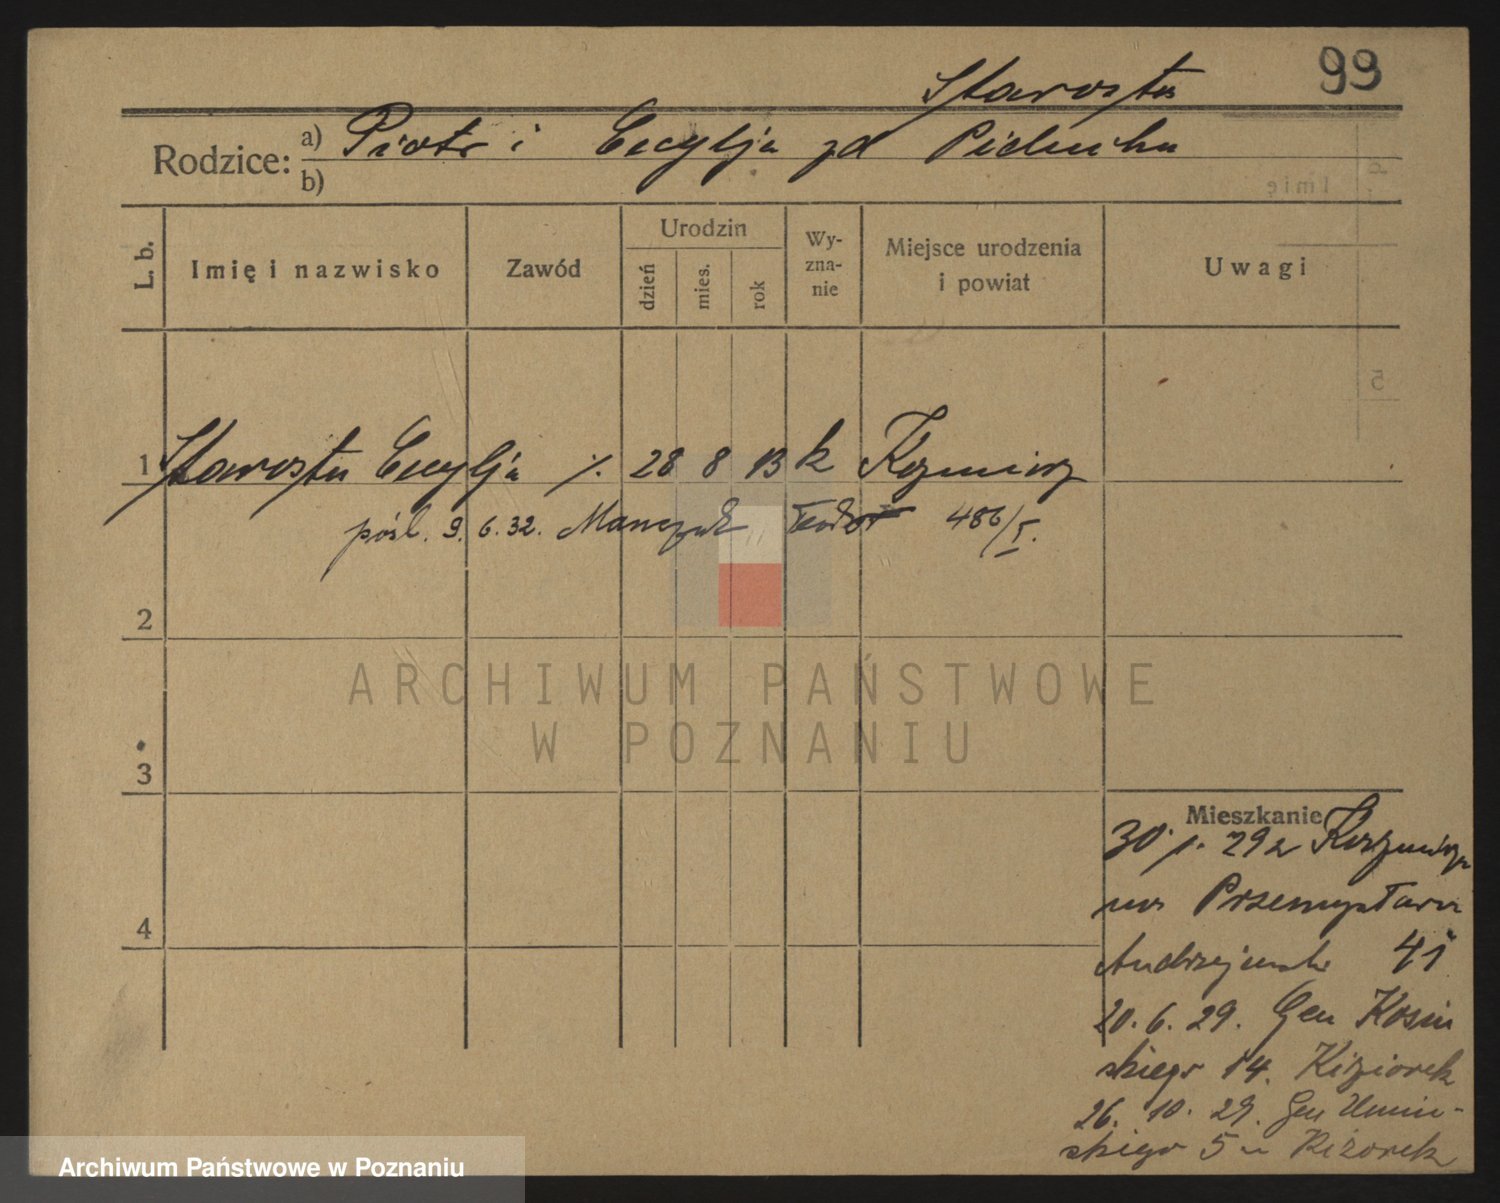 99
Starosta
Rodzice: a) Piotr i Cecylja zd Pielucha
b)
L. b.
Imię i nazwisko
Zawód
Urodzin
dzień
mies.
rok
Wy-
zna-
nie
Miejsce urodzenia
i powiat
Uwagi
1 Starosta Cecylja ./. 28 8 13 k Kazmierz
pośl. 9. 6. 32. Teodor 486/I.
2
3
4
ARCHIWUM PAŃSTWOWE
W POZNANIU
Mieszkanie
30. 1. 29 z Kazmierza
na Przemysłowa
41
20. 6. 29. Gen Kosin
skiego 14. Kiziorek
26. 10. 29. Gen Umin-
skiego 5 u Kiżorek
Archiwum Państwowe w Poznaniu